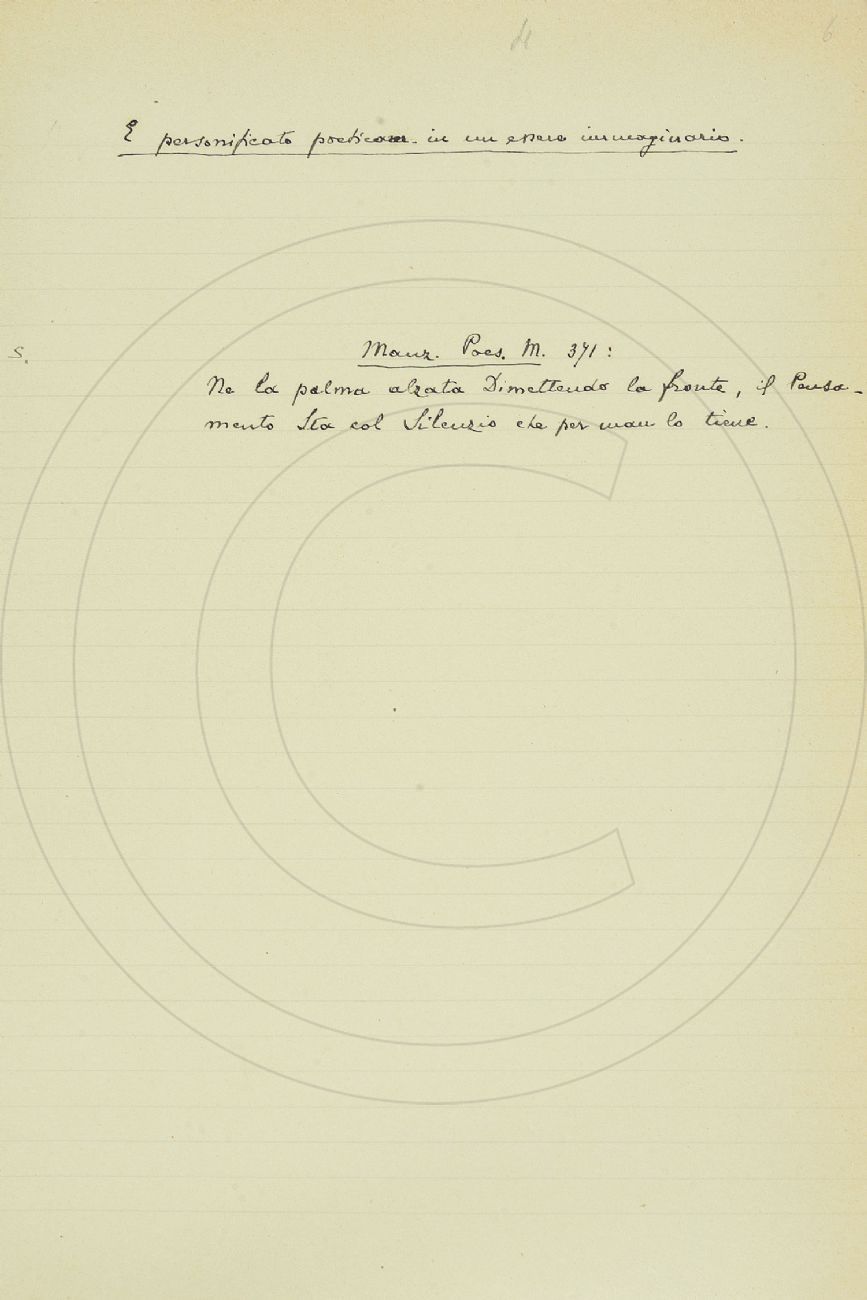 6
E personificato poeticam. in un essere immaginario.
S.
Manz. Poes. M. 371:
Ne la palma alzata Dimettendo la fronte, il Pensa-
mento Sta col Silenzio che per man lo tiene.